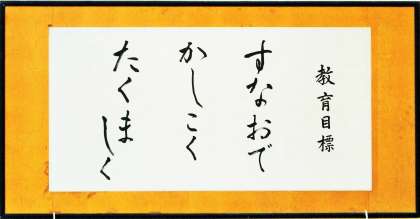 教育目標
すなおで
かしこく
たくましく